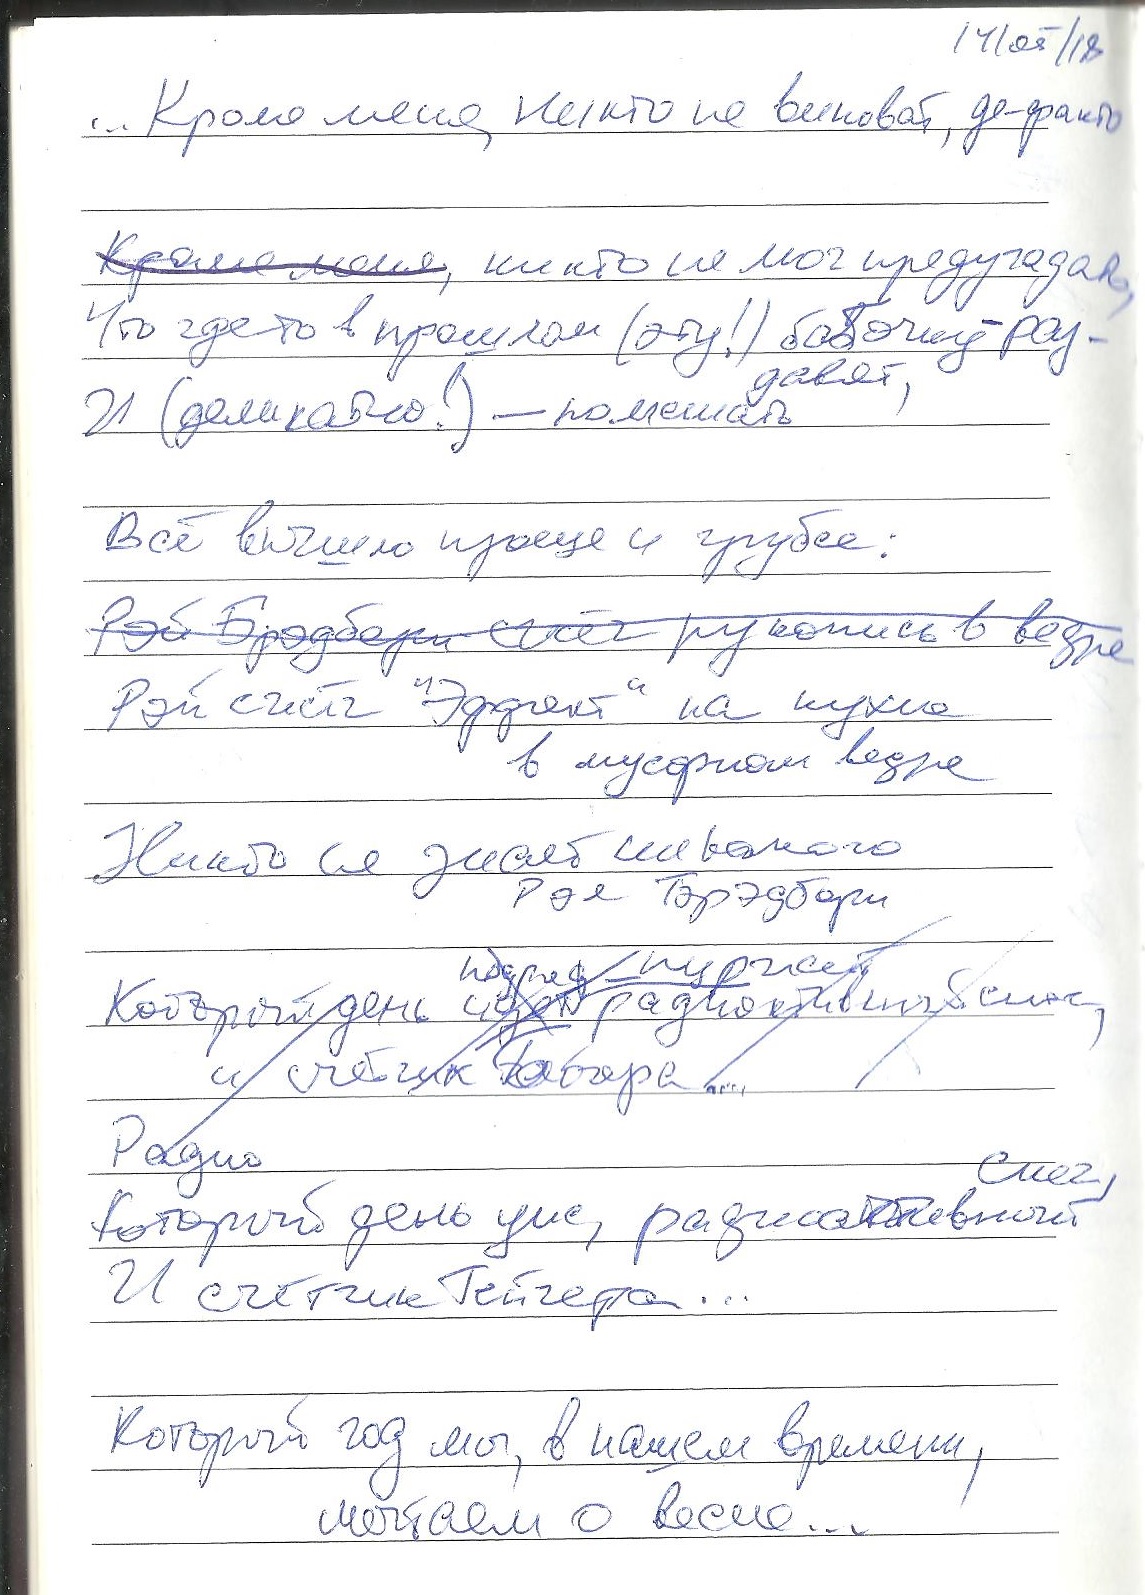 14/окт/18
... Кроме меня, никто не виноват, де-факто
Кроме меня, никто не мог предугадать,
Что где то в прошлом (эту!) бабочку раз-
давят,
И (деликатно!) — помешать
Всё вышло проще и грубее:
Рэй Брэдбери сжёг рукопись в ведре
Рэй сжёг "Эффект" на кухне
в мусорном ведре
Никто не знает никакого
Рэя Брэдбери
подряд пуржит
Который день идет радиоактивный снег,
и счётчик
Радио
снег,
Который день уже, радиоактивный
И счётчик Гейгера...
Который год мы, в нашем времени,
мечтаем о весне...